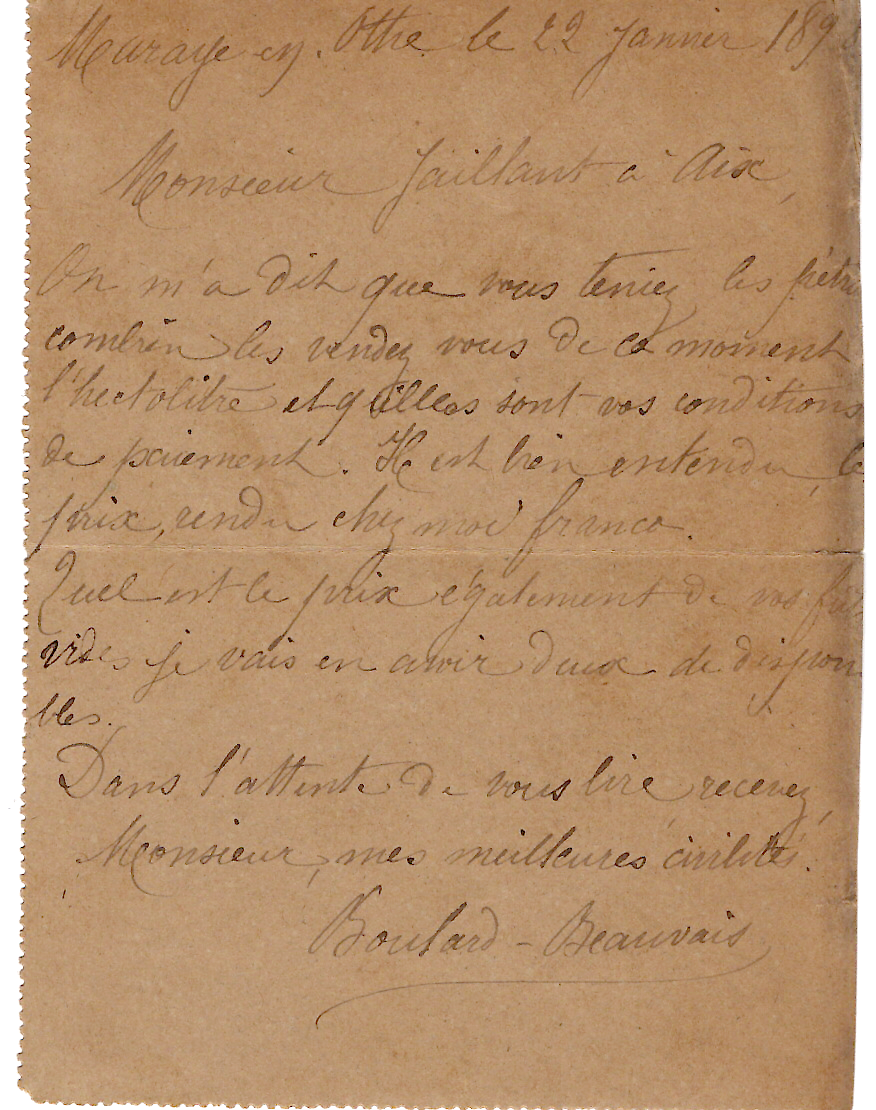 Maraye en Othe le 22 Janvier 189
Monsieur Jaillant à Aix,
On m'a dit que vous teniez les
combien les vendez vous de ce moment
l'hectolitre et q'uilles sont vos conditions
de paiement. Il est bien entendu, le
prix, rendu chez moi franco.
Quel est le prix également de vos
vides je vais en avoir deux de disponi
bles.
Dans l'attente de vous lire recevez,
Monsieur, mes meilleures civilités.
Boulard - Beauvais